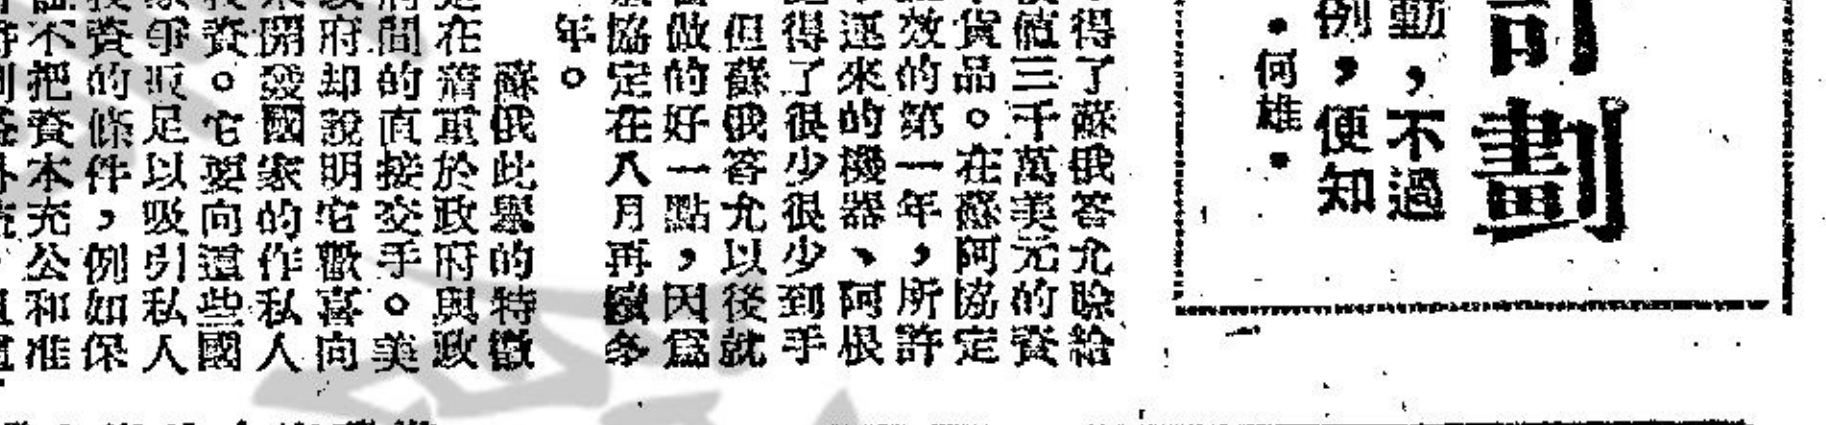 劃
動，不過
例，便知
•何雄•
得了蘇俄答允賒給
值三千萬美元的資
貨品。在蘇阿協定
效的第一年，所許
運來的機器、阿根
得了很少很少到手
但蘇俄答允以後就
做的好一點，因爲
協定在八月再續多
年。
蘇俄此舉的特徵
在着重於政府與政
間的直接交手。美
府却說明它歡喜向
開發國家的作私人
資。它要向這些國
爭取足以吸引私人
資的條件，例如保
不把資本充公和准